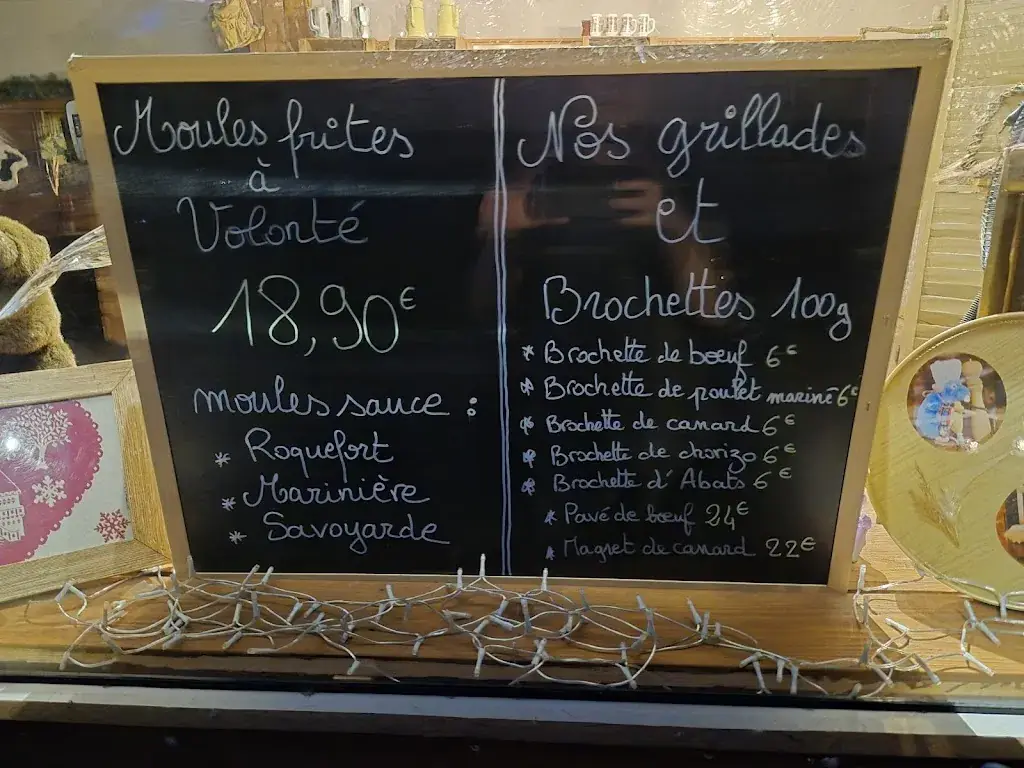 Moules frites
à
Volonté
18,90€
moules sauce :
* Roquefort
* Marinière
* Savoyarde
Nos grillades
et
Brochettes 100g
* Brochette de boeuf 6€
* Brochette de poulet mariné 6€
* Brochette de canard 6€
* Brochette de chorizo 6€
* Brochette d'Abats 6€
* Pavé de boeuf 24€
* Magret de canard 22€